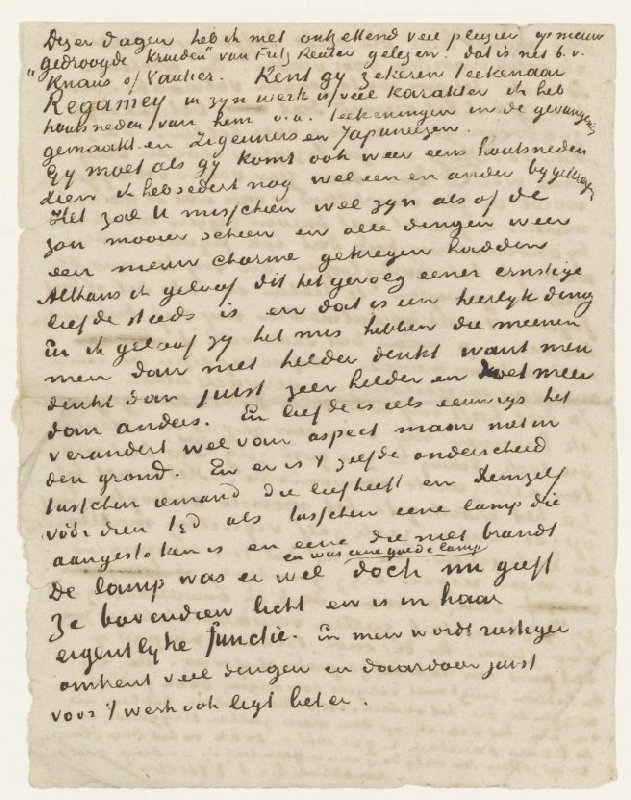 Dezer dagen heb ik met ontzettend veel plezier opnieuw
"gedroogde kruiden" van Fritz Reuter gelezen. dat is net b.v.
Knaus of Vautier. Kent gy zekeren teekenaar
Regamey in zyn werk is veel karakter ik heb
houtsneden van hem o.a. teekeningen in de gevangenis
gemaakt en Zigeuners en Japaneezen.
Gy moet als gy komt ook weer eens houtsneden
zien ik heb sedert nog wel een en ander bygekregen
Het zal U misschien wel zyn als of de
zon mooier scheen en alle dingen weer
een nieuw charme gekregen hadden
Althans ik geloof dit het gevolg eener ernstige
liefde steeds is en dat is een heerlyk ding
En ik geloof zy het mis hebben die meenen
men dan niet helder denkt want men
denkt dan juist zeer helder en doet meer
dan anders. En liefde is iets eeuwigs het
verandert wel van aspect maar niet in
den grond. En er is 't zelfde onderscheid
tusschen iemand die liefheeft en denzelf
vóór dien tyd als tusschen eene lamp die
aangestoken is en eene die niet brandt
en was eene goede lamp
De lamp was er wel doch nu geeft
ze bovendien licht en is in haar
eigentlyke functie. En men wordt rustiger
omtrent veel dingen en daardoor juist
voor 't werk ook ligt beter.